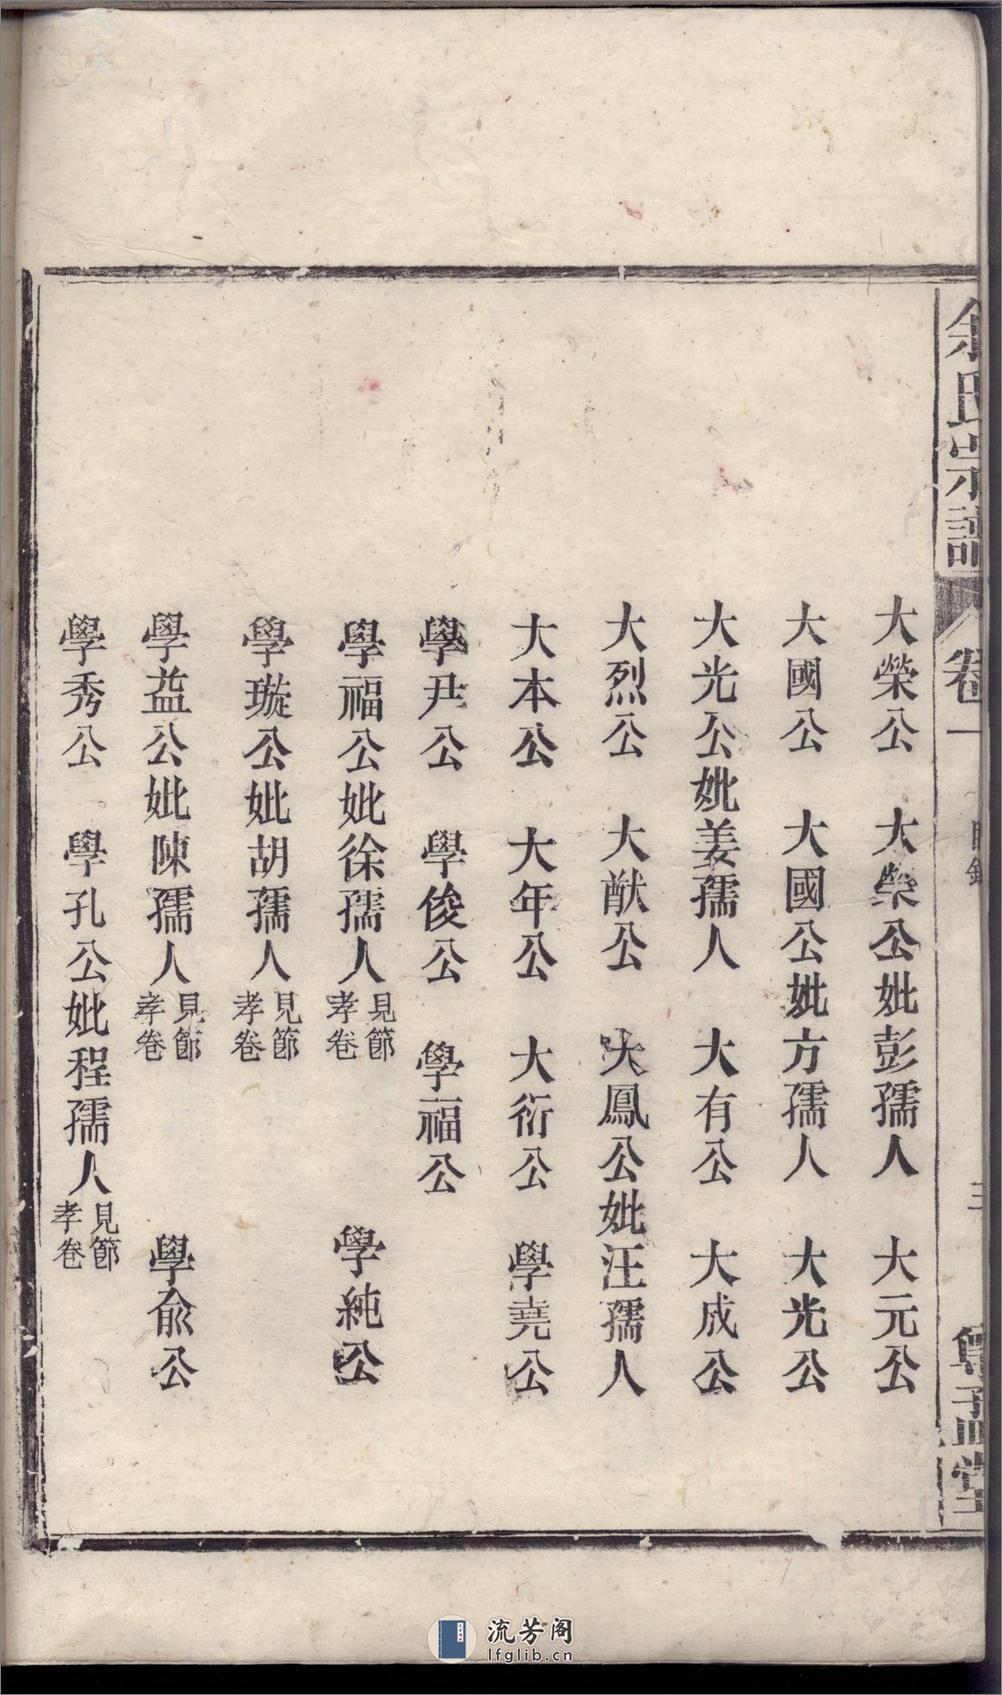 余氏宗譜 卷一 目錄 三 孟堂
大榮公 大榮公妣彭孺人 大元公
大國公 大國公妣方孺人 大光公
大光公妣姜孺人 大有公 大成公
大烈公 大猷公 大鳳公妣汪孺人
大本公 大年公 大衍公 學堯公
學尹公 學俊公 學福公
學福公妣徐孺人見節孝卷 學純公
學璇公妣胡孺人見節孝卷
學益公妣陳孺人見節孝卷 學俞公
學秀公 學孔公妣程孺人見節孝卷
流芳阁
lfglib.cn